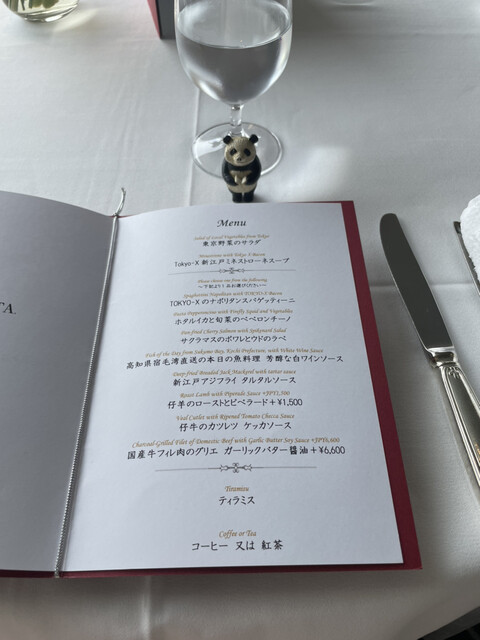 TA.
Menu
Salad of Local Vegetables from Tokyo
東京野菜のサラダ
Minestrone with Tokyo X Bacon
Tokyo-X 新江戸ミネストローネスープ
Please choose one from the following
～下記より1品お選びください～
Spaghettini Napolitan with TOKYO-X Bacon
TOKYO-Xのナポリタンスパゲッティーニ
Pasta Pepperoncino with Firefly Squid and Vegetables
ホタルイカと旬菜のペペロンチーノ
Pan-fried Cherry Salmon with Spikenard Salad
サクラマスのポワレとウドのラペ
Fish of the Day from Sukumo Bay, Kochi Prefecture, with White Wine Sauce
高知県宿毛湾直送の本日の魚料理 芳醇な白ワインソース
Deep-fried Breaded Jack Mackerel with tartar sauce
新江戸アジフライ タルタルソース
Roast Lamb with Piperade Sauce +JPY1,500
仔羊のローストとピペラード+¥1,500
Veal Cutlet with Ripened Tomato Checca Sauce
仔牛のカツレツ ケッカソース
Charcoal-Grilled Filet of Domestic Beef with Garlic Butter Soy Sauce +JPY6,600
国産牛フィレ肉のグリエ ガーリックバター醤油 +¥6,600
Tiramisu
ティラミス
Coffee or Tea
コーヒー 又は 紅茶